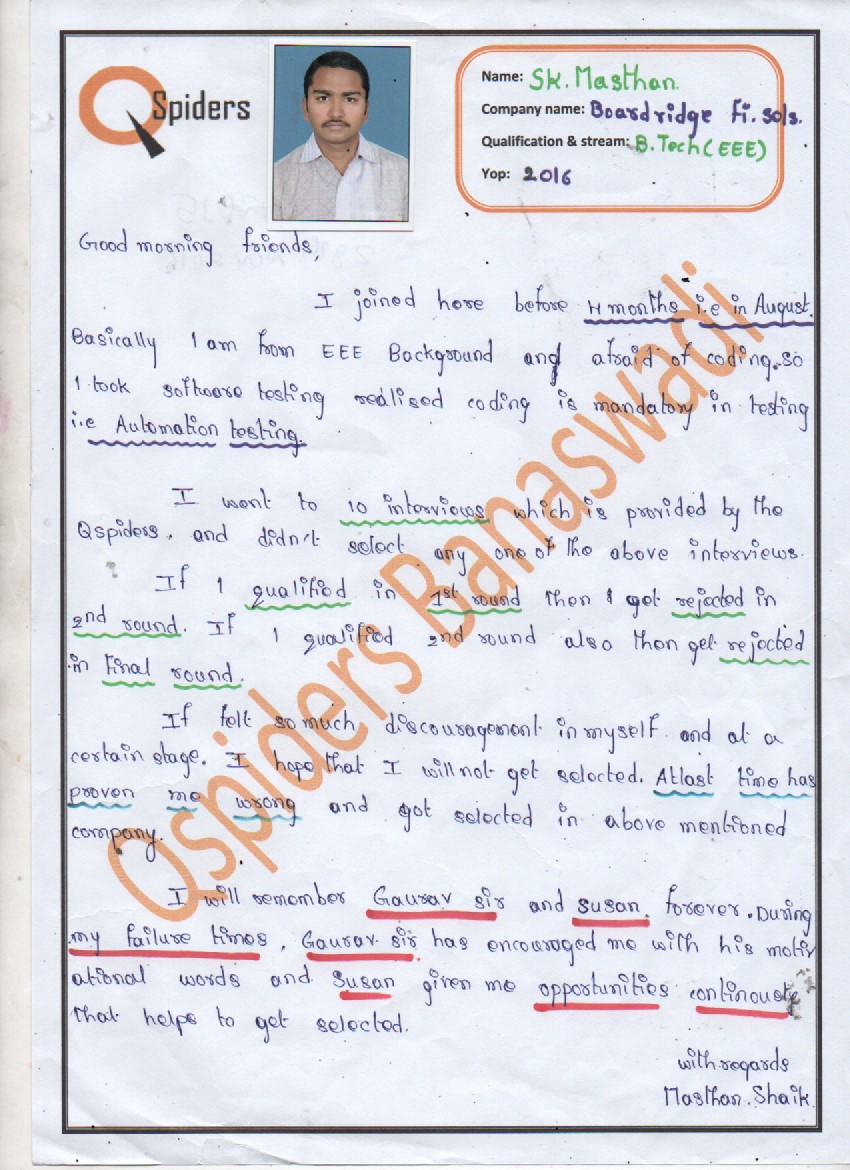 QSpiders
Name: Sk. Masthan.
Company name: Boardridge Fi. Sols.
Qualification & stream: B.Tech (EEE)
Yop: 2016
Good morning friends,
I joined here before 4 months i.e in August.
Basically I am from EEE Background and afraid of coding. so
I took software testing realised coding is mandatory in testing
i.e Automation testing.
I went to 10 interviews which is provided by the
Qspiders, and didn't select any one of the above interviews.
If I qualified in 1st round then I got rejected in
2nd round. If I qualified 2nd round also then get rejected
in final round.
If felt so much discouragement in myself and at a
certain stage. I hope that I will not get selected. Atlast time has
proven me wrong and got selected in above mentioned
company.
I will remember Gaurav sir and Susan. forever. During
my failure times, Gaurav sir has encouraged me with his motiv
ational words and Susan given me opportunities continously
that helps to get selected.
with regards
Masthan. Shaik.
Qspiders Banaswadi